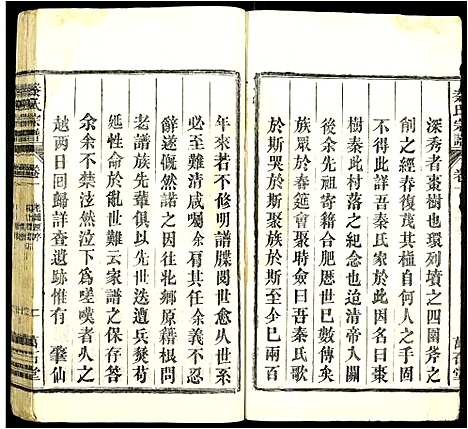 秦氏宗譜
卷一
深秀者棗樹也環列墳之四圍斧之
創之經春復茂其種自何人之手何
代不得而考吾秦氏家廟大門內有
樹秦此村荒落之紀念也清帝入關
後余先祖寄籍合肥歷世已數傳矣
族眾於春莚會歲時僉曰吾秦氏歌
於斯哭於斯聚族於斯至少已兩百
年來若不修明譜牒閱世愈久世系
必至難清咸囑余肩其任余義不容
辭遂慨然諾之因往北鄉原籍根問
老譜族先輩俱曰先世迭遭兵燹苟
延性命於亂世難云家譜之保存答
余余不禁泫然泣下為嗟嘆者久之
越兩日回歸詳查遺跡惟有肇仙
秦氏宗譜
卷一
萬石堂
萬石堂